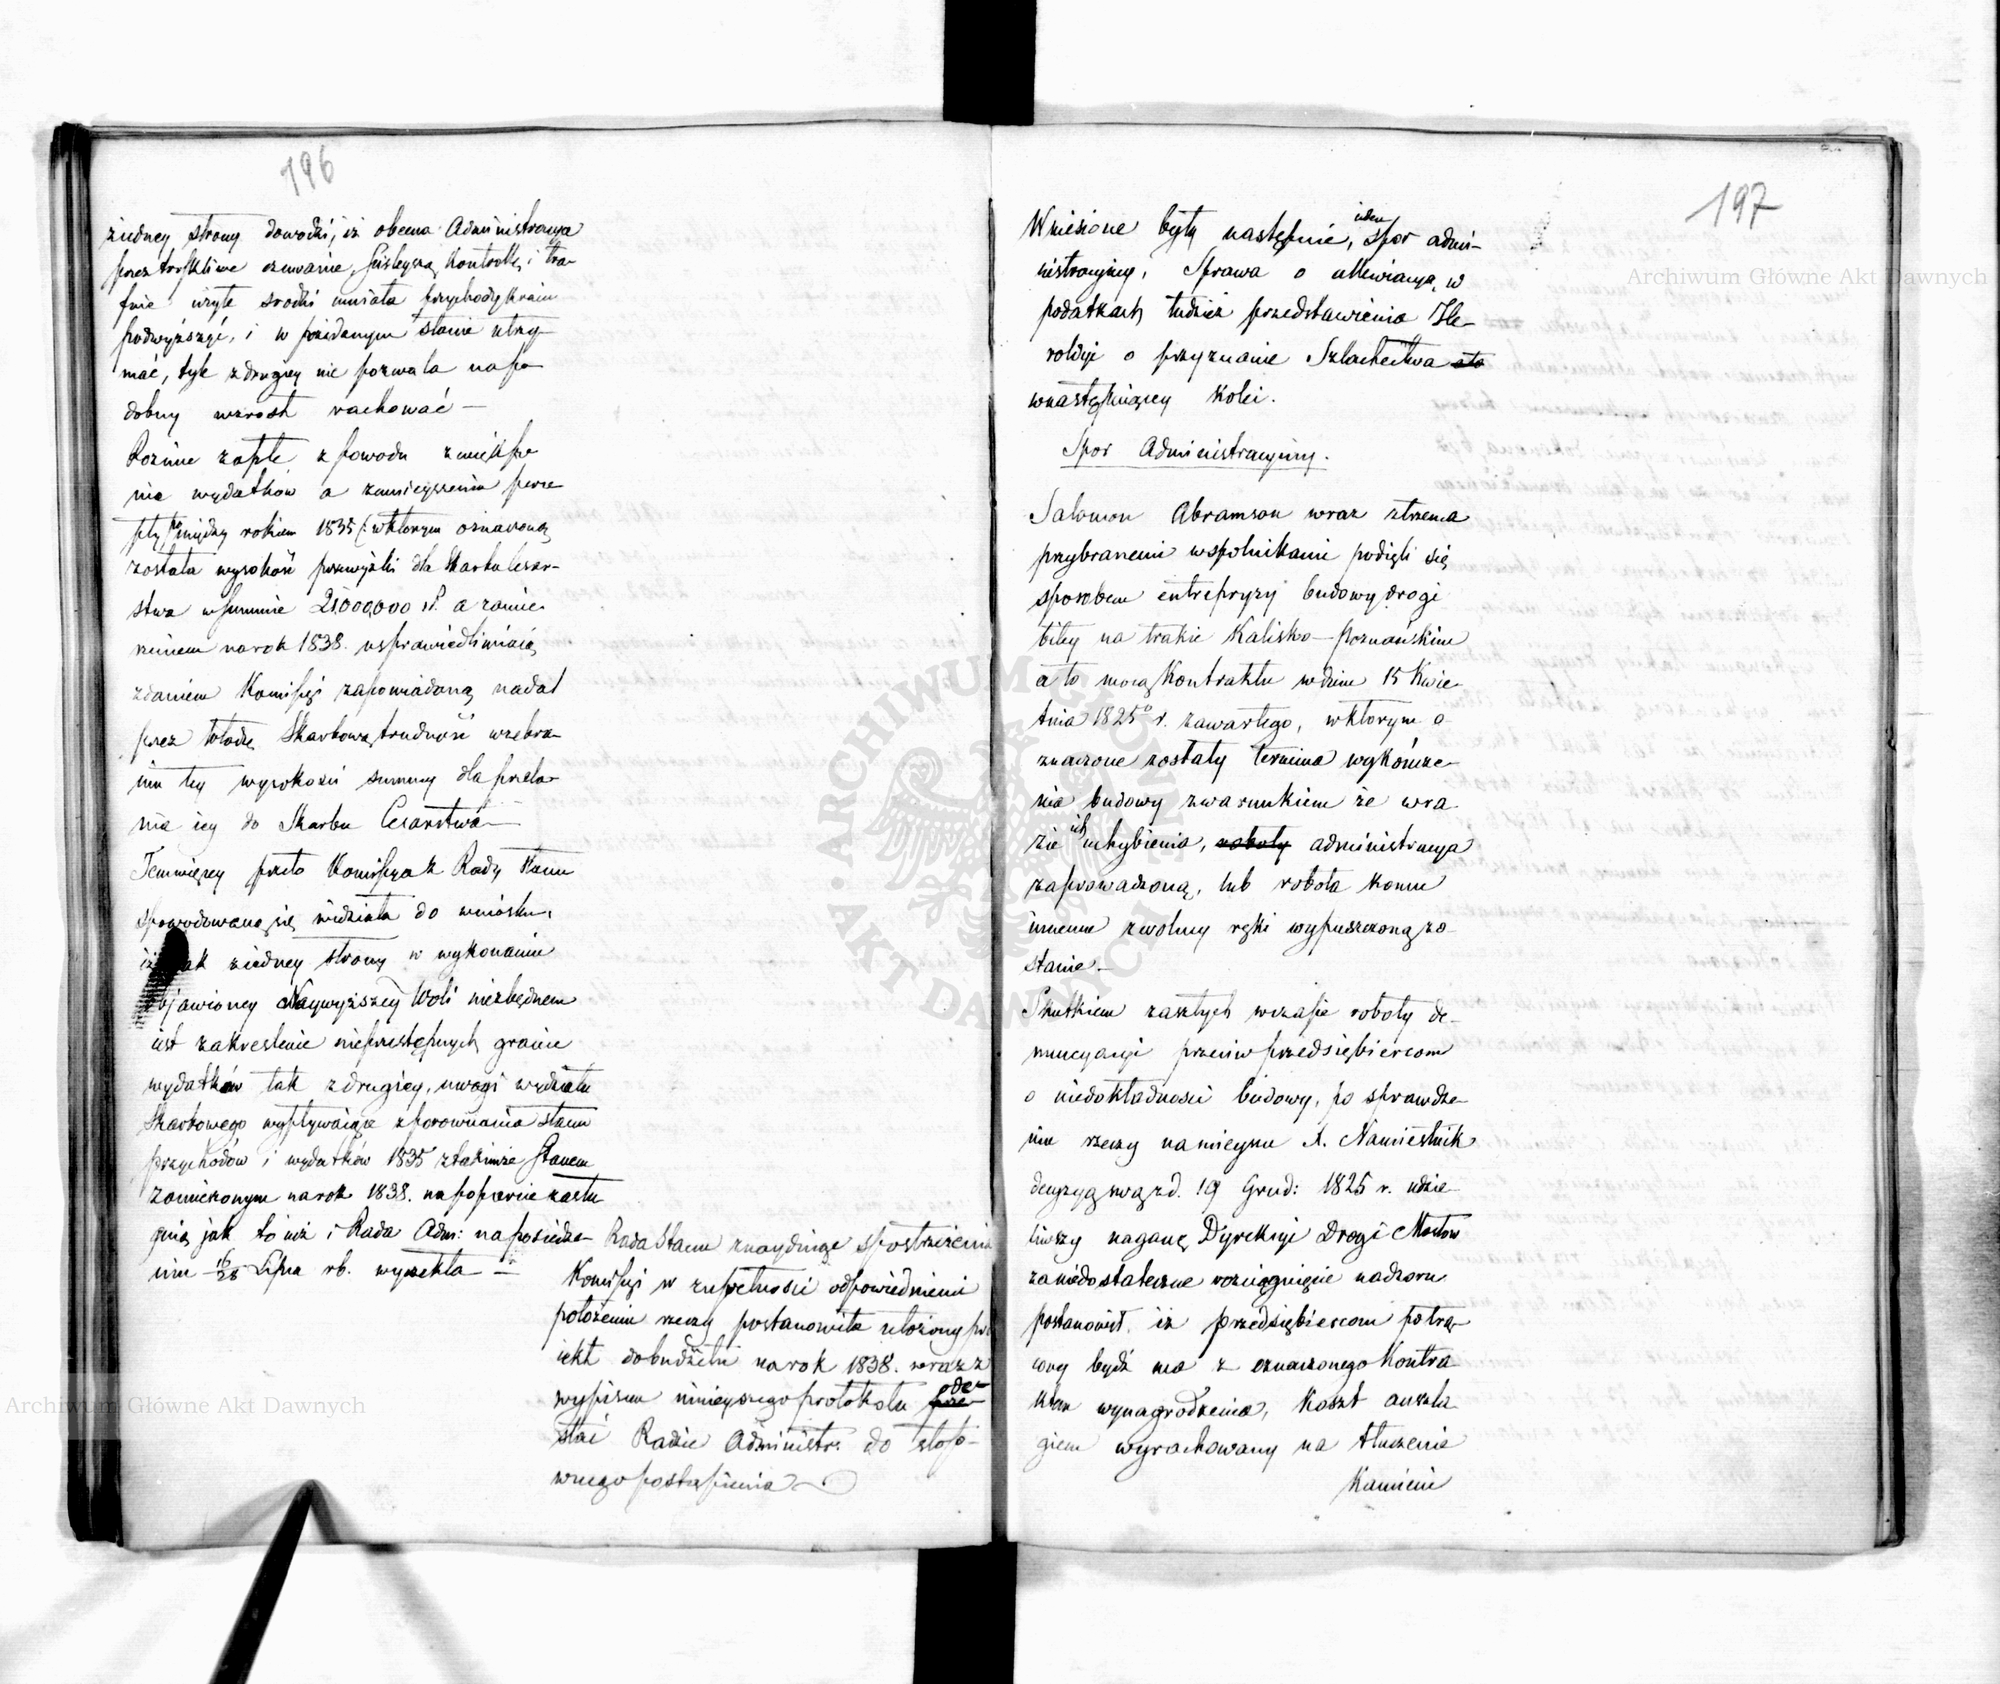 196
ziedney strony dowodzi, iż obecna Administracya
przez troskliwe czuwanie, ściśleyszą kontrollę i tra-
fnie użyte srodki umiała przychody kraiu
podwyższyć, i w pożądanym stanie utrzy-
mać, tyle z drugiey nie pozwala na po-
dobny wzrost rachować —
Rożnice zaszłe z powodu zwiększe
nia wydatków a zmnieyszenia prze
między rokiem 1835 (: w którym oznaczoną
została wysokość przewyżki dla Skarbu Cesar-
stwa w summie 21000,000 zł. a zamie-
rzeniem na rok 1838. usprawiedliwiaią
zdaniem Kommissyi zapowiadaną nadal
przez władzę Skarbową trudność w zebra-
niu tey wysokości summy dla przela-
nia iey do Skarbu Cesarstwa —
Tem więcey przeto Kommissya z Rady Stanu
spowodowaną się widziała do wniosku,
iż jak ziedney strony w wykonaniu
objawioney Naywyższey Woli niezbędnem
iest zakreslenie nieprzestępnych granic
wydatków tak z drugiey, uwagi wydziału
Skarbowego wypływaiące z porownania stanu
przychodów i wydatków 1835 z takimże stanem
zamierzonym na rok 1838. na poparcie zasłu
guią jak to iuż i Rada Adm: na posiedze-
niu 16/28 Lipca rb. wyrzekła —
Rada Stanu znayduiąc spostrzeżenia
Kommissyi w zupełności odpowiedniemi
położeniu rzeczy postanowiła ułożony pro
iekt do budżetu na rok 1838. wraz z
wypisem ninieyszego protokołu ode-
słać Radzie Administr: do stoso-
wnego postąpienia
197
Wniesione były następnie, ieden spor admi-
nistracyiny, Sprawa o ulewiacyą w
podatkach tudzież przedstawienia He-
roldyi o przyznanie Szlachectwa a to
w następuiącey kolei.
Spor Administracyiny.
Salomon Abramson wraz z trzema
przybranemi wspolnikami podięli się
sposobem entrepryzy budowy drogi
bitey na trakcie Kalisko-Poznańskim
a to mocą Kontraktu w dniu 15 Kwie-
tnia 1825 r. zawartego, w ktorym o-
znaczone zostały termina wykończe-
nia budowy z warunkiem że w ra
zie ich uchybienia, roboty administracya
zaprowadzoną, lub robota komu
innemu z wolney ręki wypuszczoną zo-
stanie —
Skutkiem zaszłych w czasie roboty de-
nuncyacyi przeciw przedsiębiercom
o niedokładności budowy, po sprawdze-
niu rzeczy na mieyscu X. Namiestnik
decyzyą swą z d. 19 Grud: 1825 r. udzie-
liwszy naganę Dyrekcyi Drogi Mostow
za niedostateczne rozciągnięcie nadzoru
postanowił, iż przedsiębiercom potrą-
cony bydź ma z oznaczonego Kontra-
ktem wynagrodzenia, koszt anszla-
giem wyrachowany na tłuczenie
Kamieni
Archiwum Główne Akt Dawnych
Archiwum Główne Akt Dawnych
ARCHIWUM GŁÓWNE AKT DAWNYCH